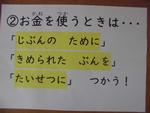 ②お金を使うときは・・・
「じぶんの ために」
「きめられた ぶんを」
「たいせつに」 つかう！